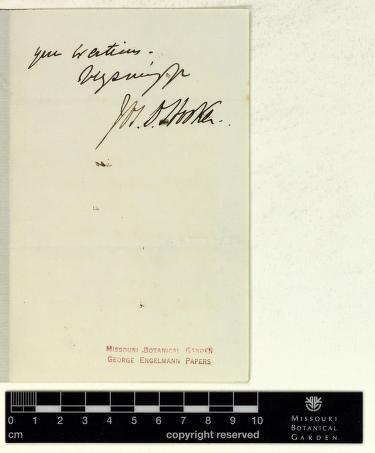 your
Jos. D. Hooker.
MISSOURI BOTANICAL GARDEN
GEORGE ENGELMANN PAPERS
0 1 2 3 4 5 6 7 8 9 10
cm copyright reserved
MISSOURI
BOTANICAL
GARDEN